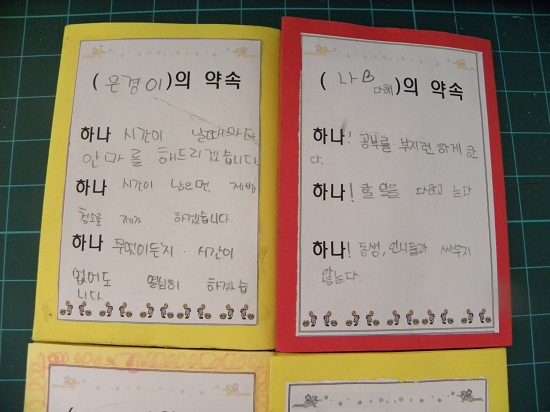 (은경이)의 약속
하나 시간이 날때마다
안마를 해드리겠습니다
하나 시간이 남으면 제방
청소를 제가 하겠습니다.
하나 무엇이든지 시간이
없어도 열심히 하겠습
니다.
(나 다혜)의 약속
하나! 공부를 부지런 하게 한
다.
하나! 할 일을 다하고 논다
하나! 동생, 언니들과 싸우지
않는다.